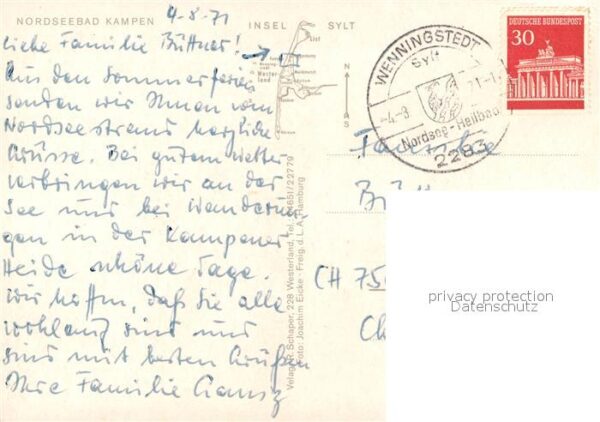 NORDSEEBAD KAMPEN
4-8-71
INSEL SYLT
Liebe Familie Büttner!
Aus den Sommerferien
senden wir Ihnen vom
Nordseestrand herzliche
Grüsse. Bei gutem Wetter
verbringen wir an der
See und bei Wanderun-
gen in der Kampener
Heide schöne Tage.
Wir hoffen, daß Sie alle
wohlauf sind und
sind mit besten Grüßen
Ihre Familie
List
Wester
land
N
S
Verlag R. Schaper, 228 Westerland, Tel. 04651/22779
Foto: Joachim Eicke - Freig. d. L.A. Hamburg
WENNINGSTEDT
Sylt
-4.-8
Nordsee-Heilbad
2283
DEUTSCHE BUNDESPOST
30
Familie
Bütt
CH 75
Ch
privacy protection
Datenschutz